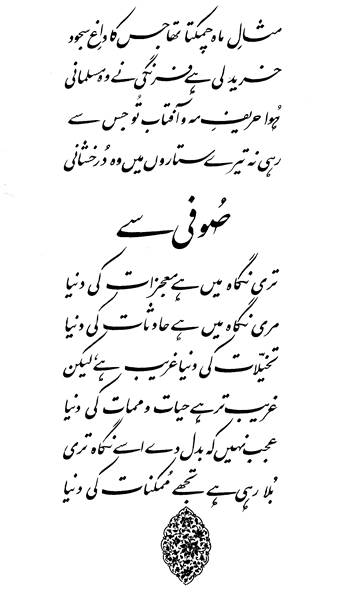 مثالِ ماہ چمکتا تھا جس کا داغِ سجود
خرید لی ہے فرنگی نے وہ مسلمانی
ہُوا حریفِ مہ و آفتاب تُو جس سے
رہی نہ تیرے ستاروں میں وہ دُرخشانی
صُوفی سے
تری نگاہ میں ہے معجزات کی دنیا
مری نگاہ میں ہے حادثات کی دنیا
تخیّلات کی دنیا غریب ہے، لیکن
غریب تر ہے حیات و ممات کی دنیا
عجب نہیں کہ بدل دے اسے نگاہ تری
بُلا رہی ہے تجھے مُمکنات کی دنیا